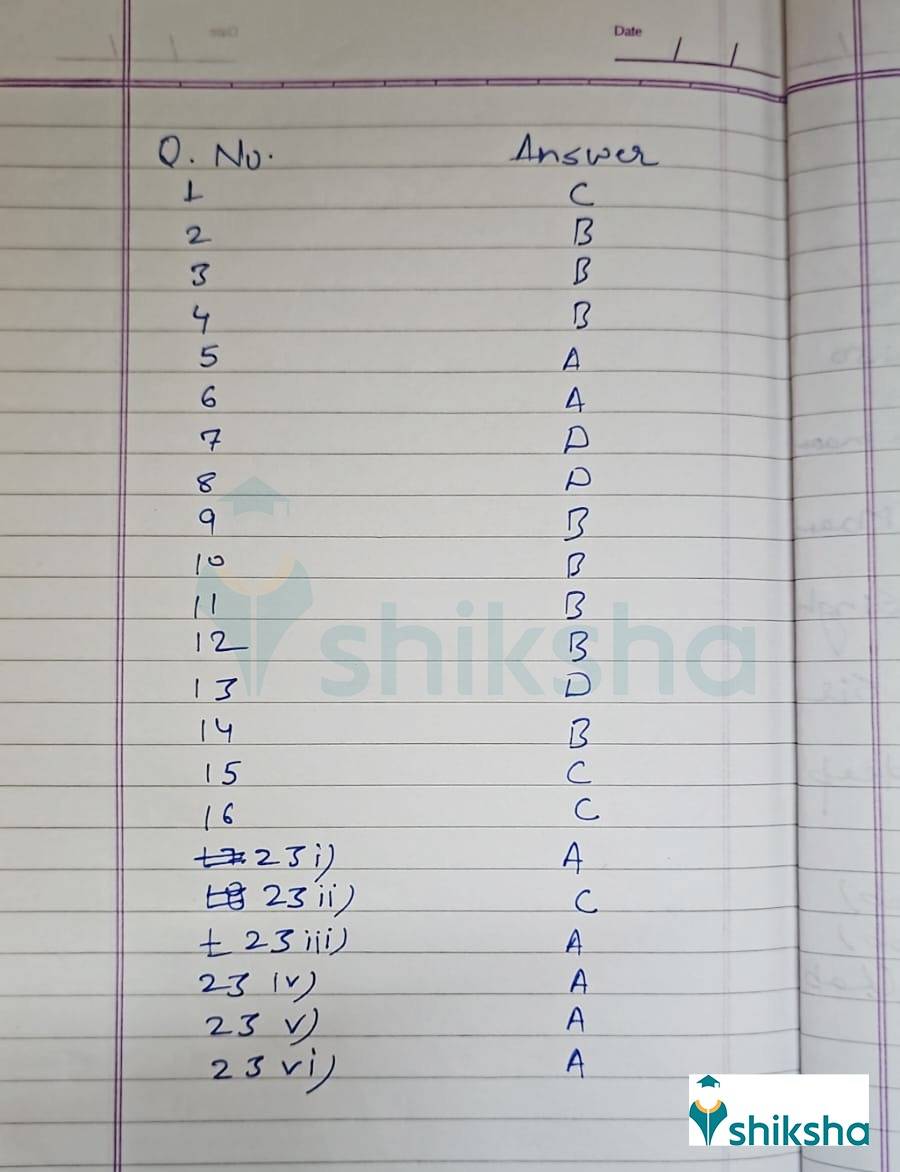 Date
Q. No. Answer
1 C
2 B
3 B
4 B
5 A
6 A
7 D
8 D
9 B
10 B
11 B
12 B
13 D
14 B
15 C
16 C
17 23 i) A
18 23 ii) C
1 23 iii) A
23 iv) A
23 v) A
23 vi) A
shiksha
shiksha